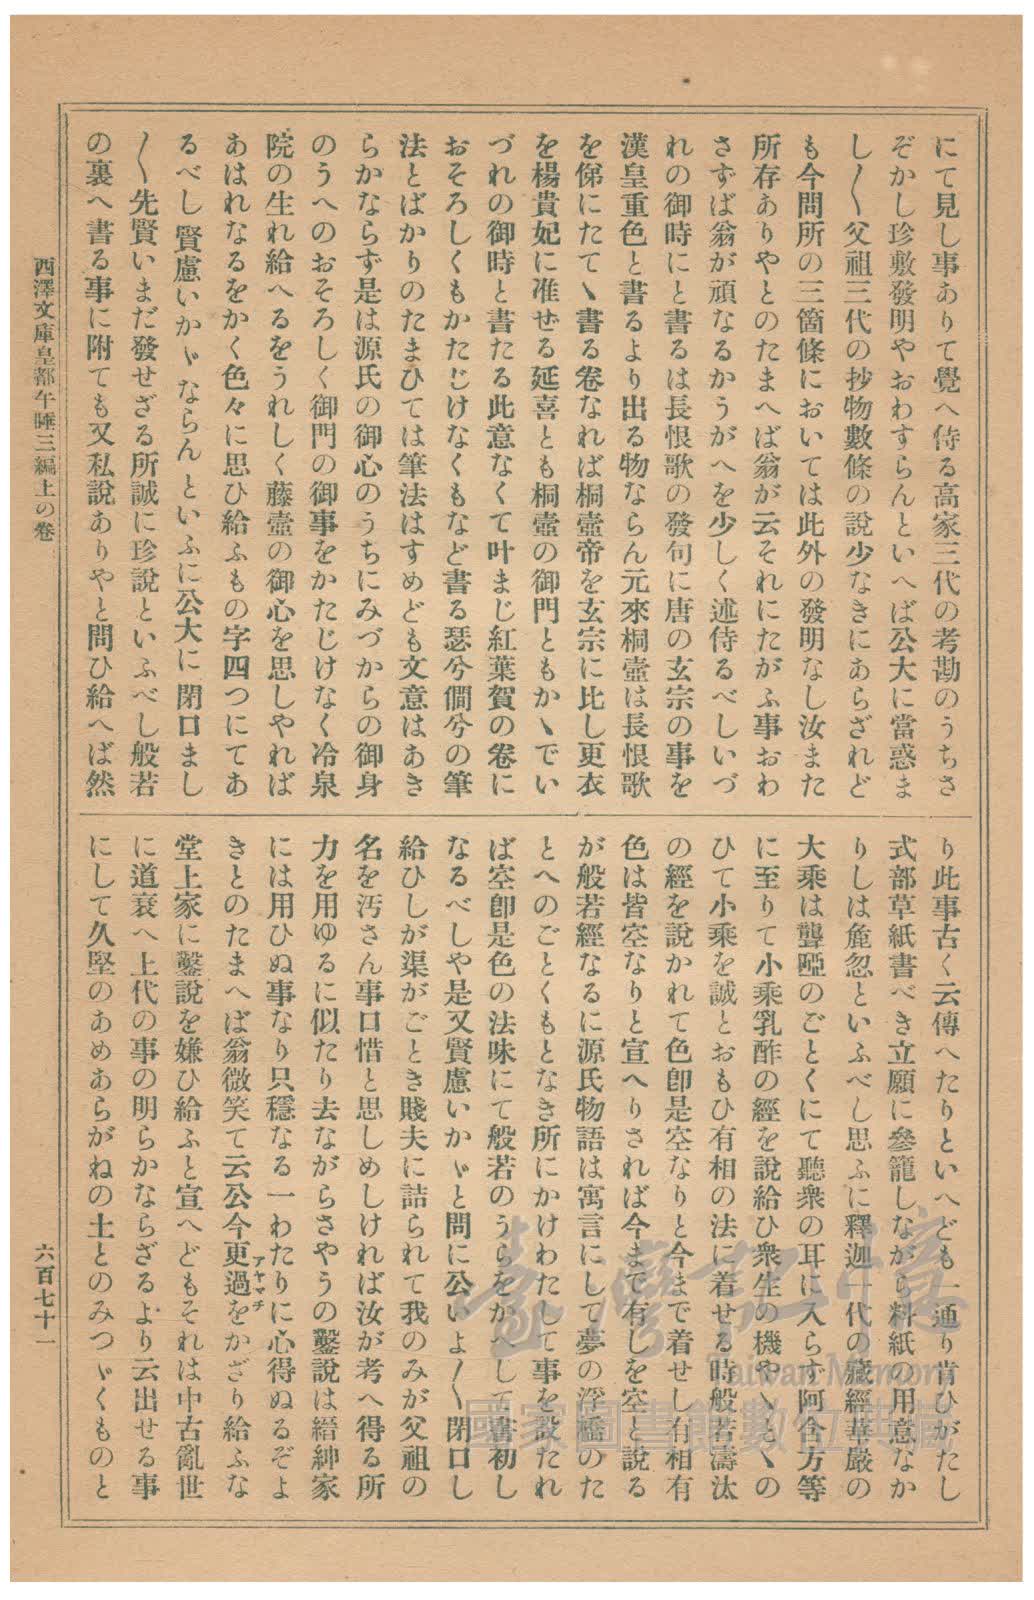 にて見し事ありて覺へ侍る高家三代の考勘のうちさ
ぞかし珍敷發明やおわすらんといへば公大に當惑ま
し〳〵父祖三代の抄物數條の說少なきにあらざれど
も今問所の三箇條においては此外の發明なし汝また
所存ありやとのたまへば翁が云それにたがふ事おわ
さずば翁が頑なるかうがへを少しく述侍るべしいづ
れの御時にと書るは長恨歌の發句に唐の玄宗の事を
漢皇重色と書るより出る物ならん元來桐壺は長恨歌
を俤にたてゝ書る卷なれば桐壺帝を玄宗に比し更衣
を楊貴妃に准せる延喜とも桐壺の御門ともかゝでい
づれの御時と書たる此意なくて叶まじ紅葉賀の卷に
おそろしくもかたじけなくもなど書る瑟兮僩兮の筆
法とばかりのたまひては筆法はすめども文意はあき
らかならず是は源氏の御心のうちにみづからの御身
のうへのおそろしく御門の御事をかたじけなく冷泉
院の生れ給へるをうれしく藤壺の御心を思しやれば
あはれなるをかく色々に思ひ給ふもの字四つにてあ
るべし賢慮いかゞならんといふに公大に閉口まし
〳〵先賢いまだ發せざる所誠に珍說といふべし般若
の裏へ書る事に附ても又私說ありやと問ひ給へば然
り此事古く云傳へたりといへども一通り肯ひがたし
式部草紙書べき立願に參籠しながら料紙の用意なか
りしは麁忽といふべし思ふに釋迦一代の藏經華嚴の
大乘は聾啞のごとくにて聽衆の耳に入らす阿含方等
に至りて小乘乳酢の經を說給ひ衆生の機やゝとゝの
ひて小乘を誠とおもひ有相の法に着せる時般若濤汰
の經を說かれて色卽是空なりと今まで着せし有相有
色は皆空なりと宣へりされば今まで有しを空と說る
が般若經なるに源氏物語は寓言にして夢の浮橋のた
とへのごとくもとなき所にかけわたして事を設たれ
ば空卽是色の法味にて般若のうらをかへして書初し
なるべしや是又賢慮いかゞと問に公いよ〳〵閉口し
給ひしが渠がごとき賤夫に詰られて我のみが父祖の
名を汚さん事口惜と思しめしければ汝が考へ得る所
力を用ゆるに似たり去ながらさやうの鑿說は縉紳家
には用ひぬ事なり只穩なる一わたりに心得ぬるぞよ
きとのたまへば翁微笑て云公今更過をかざり給ふな
アヤマチ
堂上家に鑿說を嫌ひ給ふと宣へどもそれは中古亂世
に道衰へ上代の事の明らかならざるより云出せる事
にして久堅のあめあらがねの土とのみつゞくものと
西澤文庫皇都午睡三編上の卷
六百七十一
臺灣記憶
Taiwan Memory
國家圖書館數位典藏